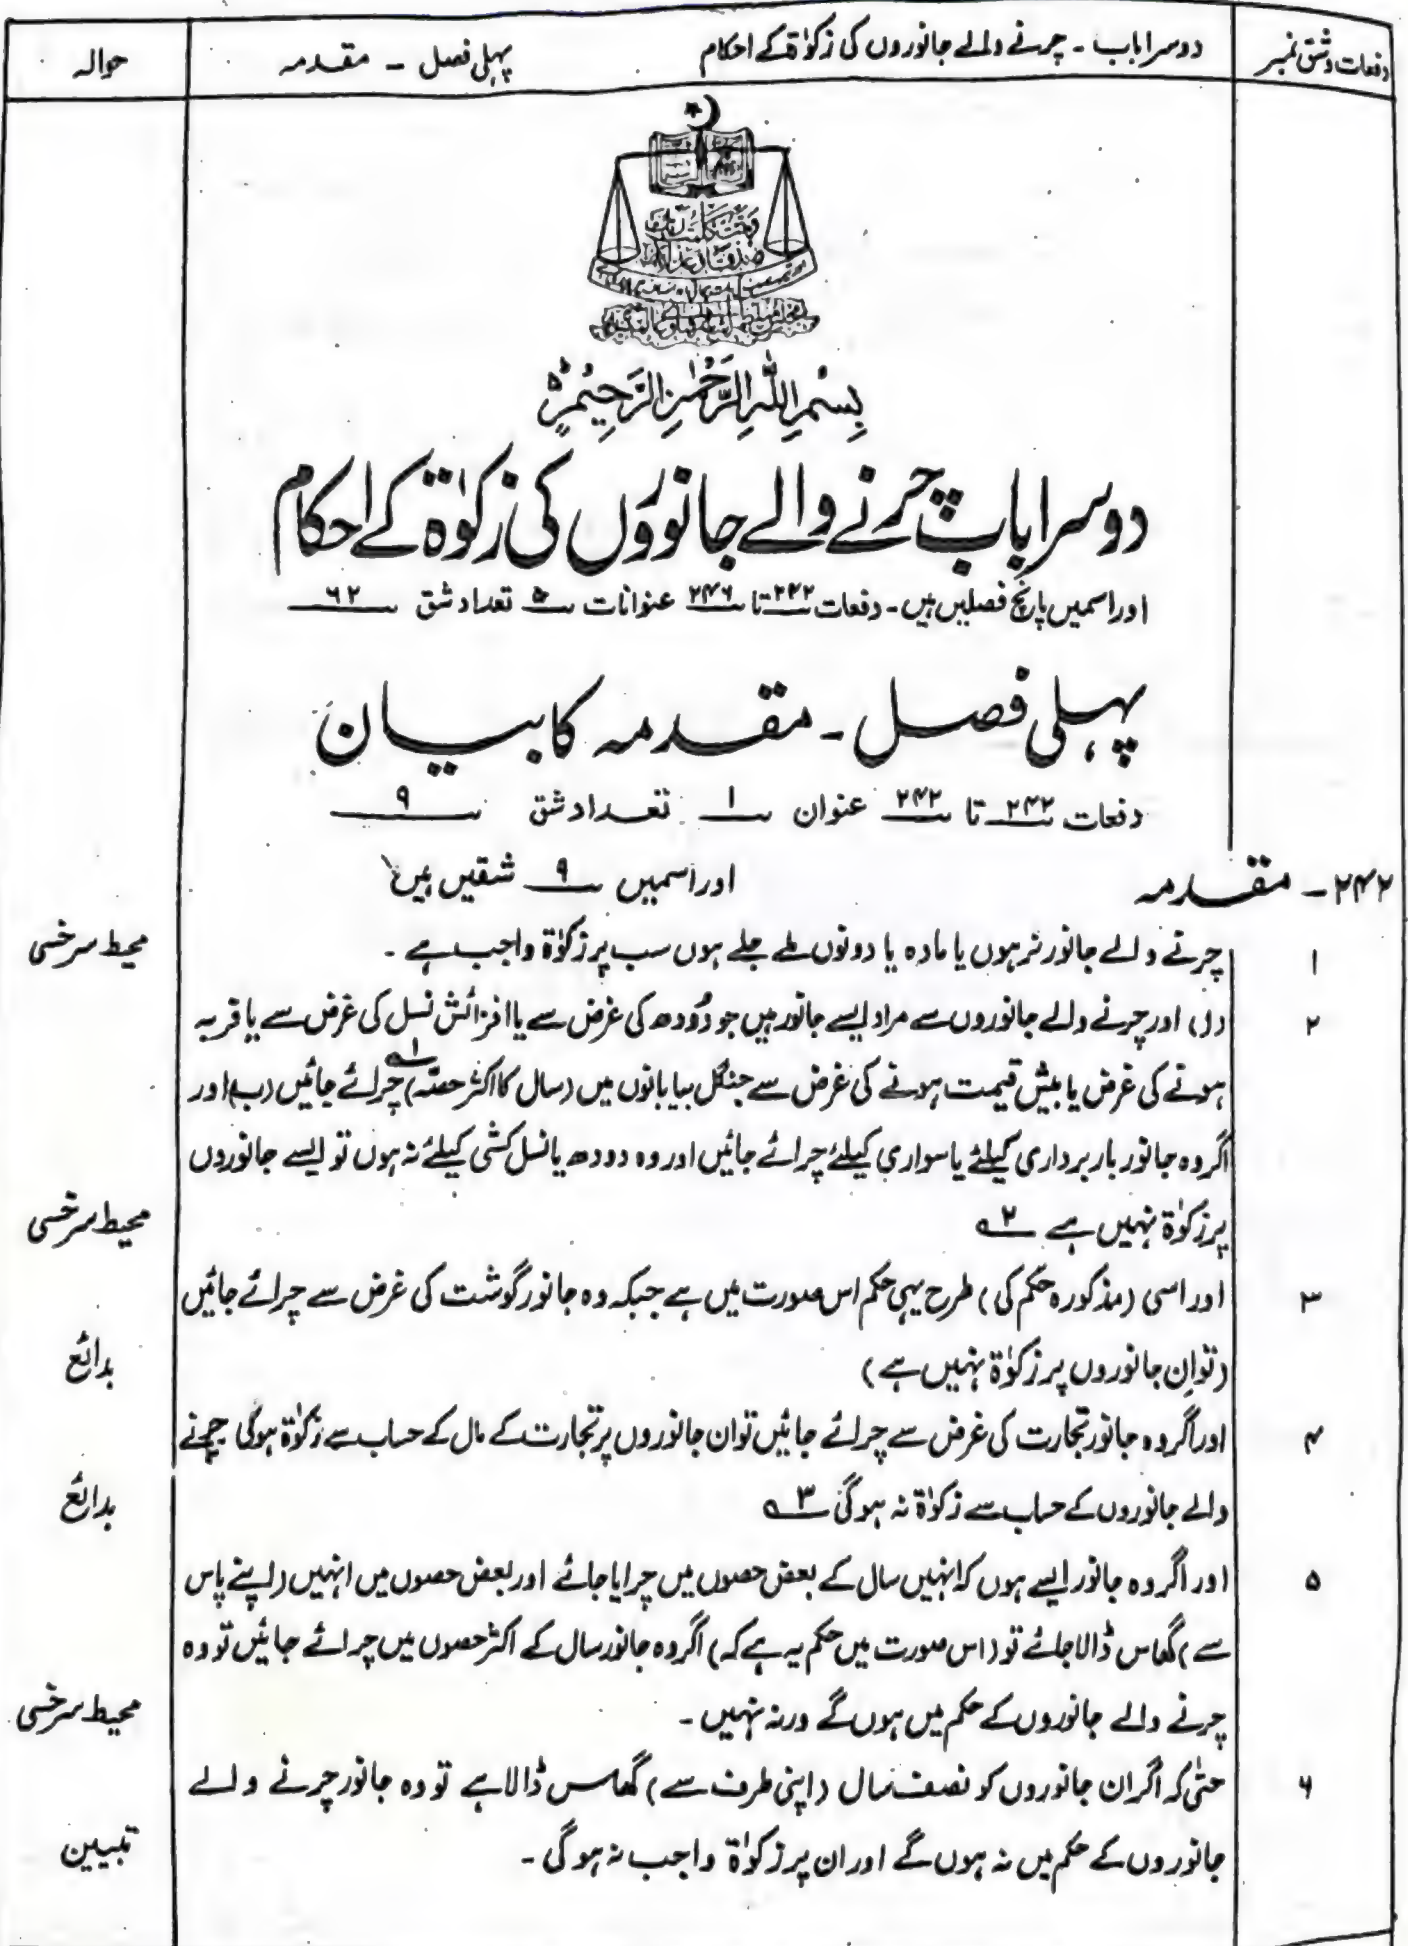 دفعات و شق نمبر
دوسرا باب - چرنے والے جانوروں کی زکوٰۃ کے احکام
پہلی فصل - مقدمہ
حوالہ
بِسْمِ اللّٰهِ الرَّحْمٰنِ الرَّحِيْمِ
دوسرا باب چرنے والے جانوروں کی زکوٰۃ کے احکام
اور اسمیں پانچ فصلیں ہیں - دفعات ۲۴۲ تا ۲۴۶ عنوانات ۵ تعداد شق ۶۲
پہلی فصل - مقدمہ کا بیان
دفعات ۲۴۲ تا ۲۴۲ عنوان ۱ تعداد شق ۹
۲۴۲ - مقدمہ اور اسمیں ۹ شقیں ہیں
۱ چرنے والے جانور نر ہوں یا مادہ یا دونوں ملے جلے ہوں سب پر زکوٰۃ واجب ہے - محیط سرخسی
۲ (ا) اور چرنے والے جانوروں سے مراد ایسے جانور ہیں جو دُودھ کی غرض سے یا افزائش نسل کی غرض سے یا فربہ
ہونے کی غرض یا بیش قیمت ہونے کی غرض سے جنگل بیابانوں میں (سال کا اکثر حصّہ) ۱ چرائے جائیں (ب) اور
اگر وہ جانور باربرداری کیلئے یا سواری کیلئے چرائے جائیں اور وہ دودھ یا نسل کشی کیلئے نہ ہوں تو ایسے جانوروں
پر زکوٰۃ نہیں ہے ۲ محیط سرخسی
۳ اور اسی (مذکورہ حکم کی) طرح یہی حکم اس صورت میں ہے جبکہ وہ جانور گوشت کی غرض سے چرائے جائیں
(تو ان جانوروں پر زکوٰۃ نہیں ہے) بدائع
۴ اور اگر وہ جانور تجارت کی غرض سے چرائے جائیں تو ان جانوروں پر تجارت کے مال کے حساب سے زکوٰۃ ہوگی چرنے
والے جانوروں کے حساب سے زکوٰۃ نہ ہوگی ۳ بدائع
۵ اور اگر وہ جانور ایسے ہوں کہ انہیں سال کے بعض حصوں میں چرایا جائے اور بعض حصوں میں انہیں (اپنے پاس
سے) گھاس ڈالا جائے تو (اس صورت میں حکم یہ ہے کہ) اگر وہ جانور سال کے اکثر حصوں میں چرائے جائیں تو وہ
چرنے والے جانوروں کے حکم میں ہوں گے ورنہ نہیں - محیط سرخسی
۶ حتیٰ کہ اگر ان جانوروں کو نصف سال (اپنی طرف سے) گھاس ڈالا ہے تو وہ جانور چرنے والے
جانوروں کے حکم میں نہ ہوں گے اور ان پر زکوٰۃ واجب نہ ہوگی - تبیین